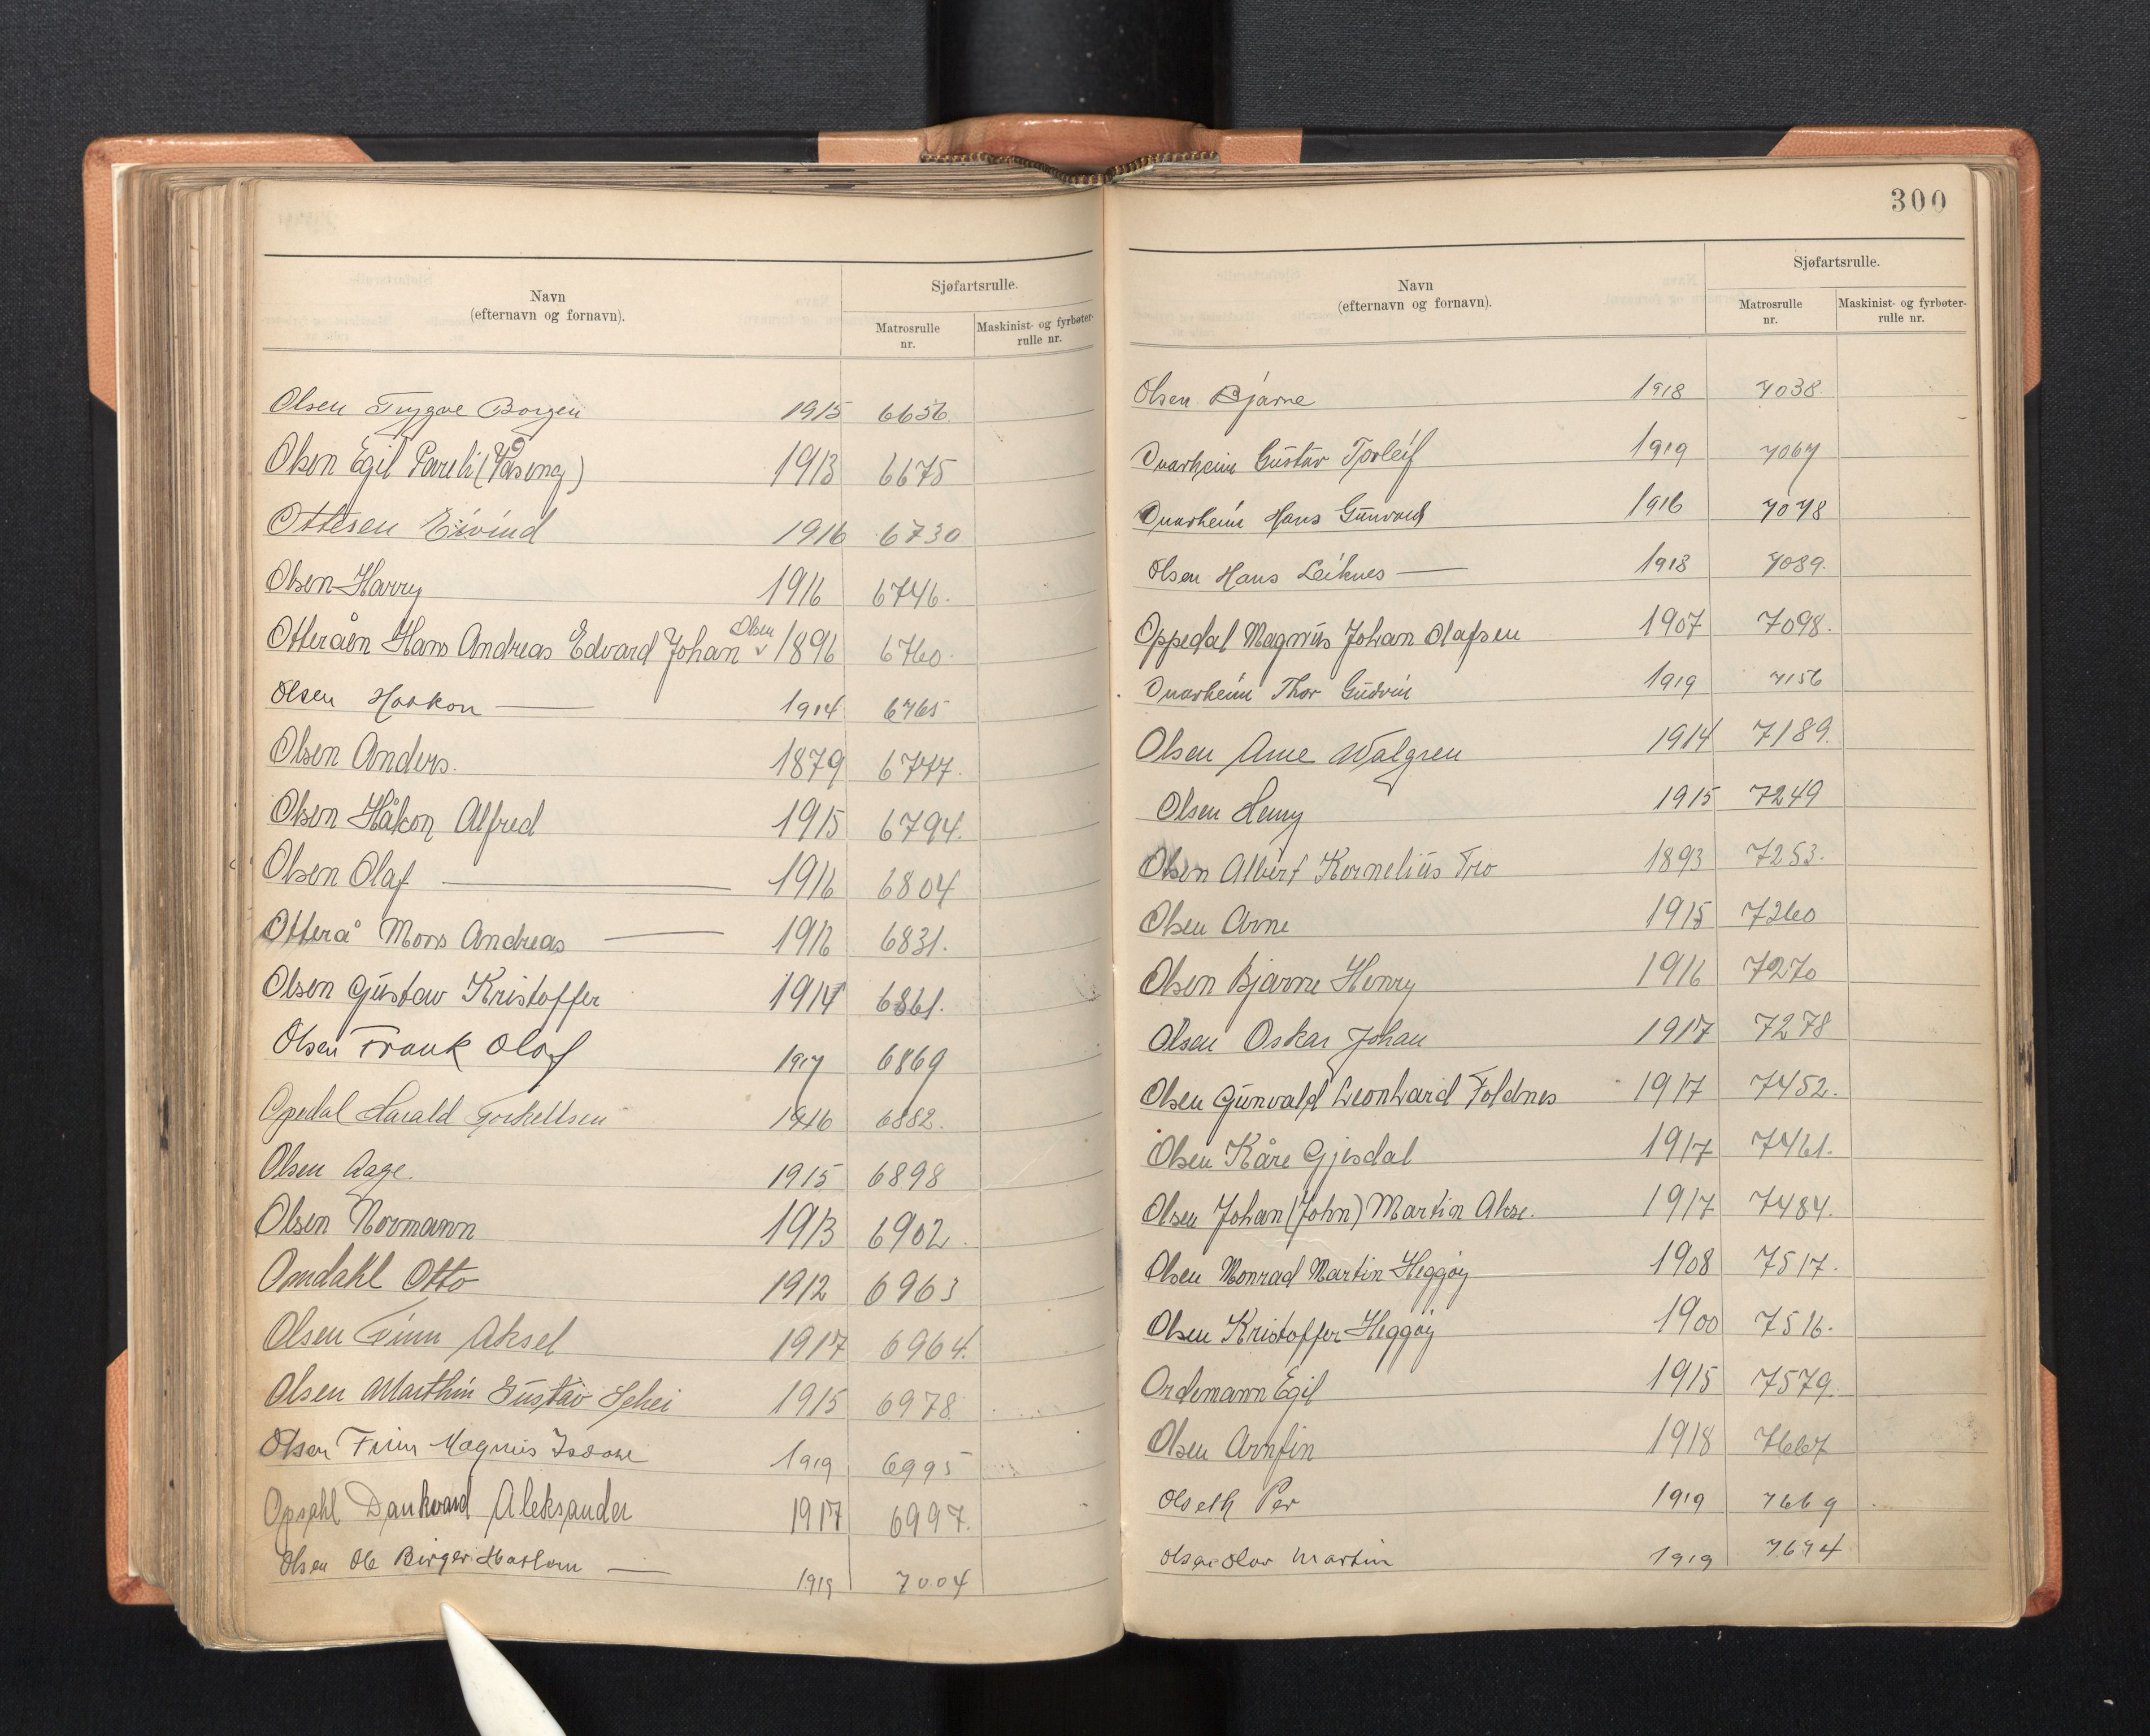 300
Navn
(efternavn og fornavn).
Sjøfartsrulle.
Matrosrulle
nr.
Maskinist- og fyrbøter-
rulle nr.
Olsen Tryggve Borgen 1915 6656
Olsen Egil Pareli 1913 6675
Ottesen Eivind 1916 6730
Olsen Harry 1916 6746.
Olsen
Otteråen Hans Andreas Edvard Johan v 1896 6760.
Olsen Haakon 1914 6765
Olsen Anders. 1879 6777.
Olsen Håkon Alfred 1915 6794.
Olsen Olaf 1916 6804
Otterå Mons Andreas 1916 6831.
Olsen Gustav Kristoffer 1914 6861.
Olsen Frank Olaf 1917 6869
Opedal Harald Torkellsen 1916 6882.
Olsen Aage. 1915 6898
Olsen Normann 1913 6902.
Omdahl Otto 1912 6963
Olsen Finn Aksel 1917 6964.
Olsen Marthin Gustav 1915 6978
Olsen Finn Magnus 1919 6995
Opsahl Dankvard Aleksander 1917 6997.
Olsen Ole Birger 1919 7004
Navn
(efternavn og fornavn).
Sjøfartsrulle.
Matrosrulle
nr.
Maskinist- og fyrbøter-
rulle nr.
Olsen Bjarne 1918 7038
Gustav Torleif 1919 7067
Hans Gunvald 1916 7078
Olsen Hans Leiknes 1918 7089.
Oppedal Magnus Johan Olafsen 1907 7098.
Thor Gudvin 1919 7156
Olsen Arne Walgren 1914 7189.
Olsen Henry 1915 7249
Olsen Albert Kornelius Tro 1893 7253.
Olsen Arne 1915 7260
Olsen Bjarne Henry 1916 7270
Olsen Oskar Johan 1917 7278
Olsen Gunvald Leonhard Foldnes 1917 7452.
Olsen Kåre Gjesdal 1917 7461.
Olsen Johan (John) Martin 1917 7484.
Olsen Monrad Martin Heggøy 1908 7517.
Olsen Kristoffer Heggøy 1900 7516.
Ordemann Egil 1915 7579.
Olsen Arnfin 1918 7667
Olseth Per 1919 7669
Olsen Olav Martin 1919 7674